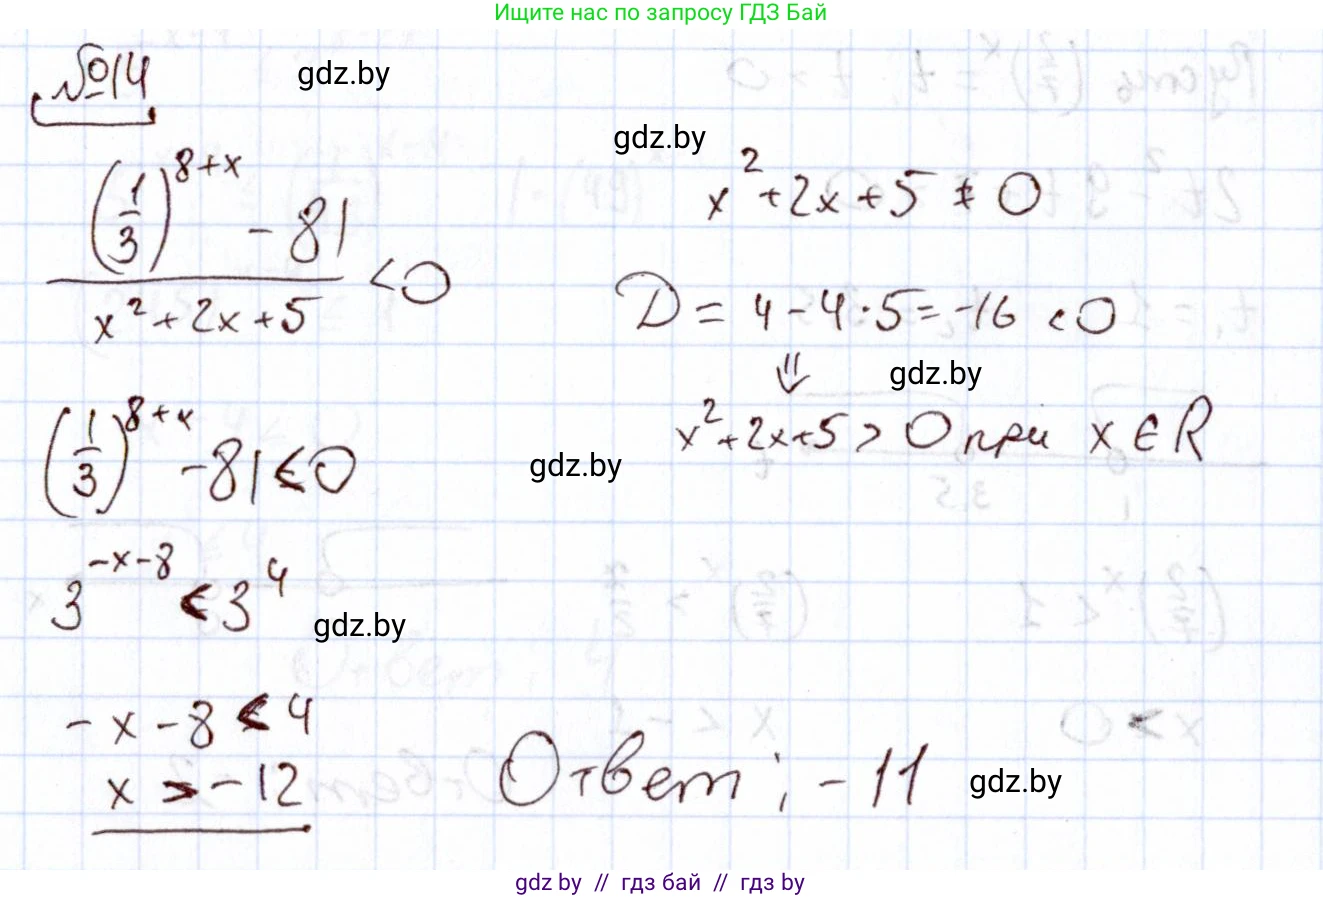 Ищите нас по запросу ГДЗ Бай
№14
gdz.by
gdz.by
(1/3)^(8+x) - 81
x² + 2x + 5
< 0
x² + 2x + 5 ≠ 0
D = 4 - 4·5 = -16 < 0
⇓
gdz.by
x² + 2x + 5 > 0 при x ∈ R
(1/3)^(8+x) - 81 < 0
gdz.by
3^(-x-8) < 3^4
gdz.by
-x - 8 < 4
x > -12
Ответ: -11
gdz.by
gdz by // гдз бай // gdz by